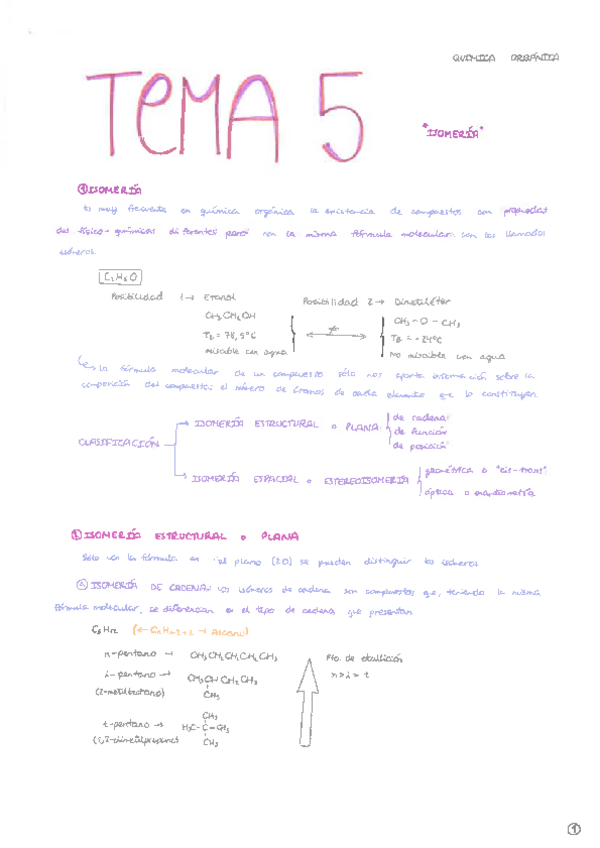 QUÍMICA ORGÁNICA
TEMA 5
"ISOMERÍA"
① ISOMERÍA
Es muy frecuente en química orgánica la existencia de compuestos con propiedades
físico-químicas diferentes pero con la misma fórmula molecular: son los llamados
isómeros.
C₂H₆O
Posibilidad 1 → Etanol
CH₃CH₂OH
miscible con agua
≠
Posibilidad 2 → Dimetiléter
CH₃-O-CH₃
TB = -24ºC
No miscible con agua
↳ La fórmula molecular de un compuesto sólo nos aporta información sobre la
composición del compuesto: el número de átomos de cada elemento que lo constituyen
CLASIFICACIÓN
ISOMERÍA ESTRUCTURAL o PLANA
de cadena
de función
de posición
ISOMERÍA ESPACIAL o ESTEREOISOMERÍA
geométrica o "cis-trans"
óptica o
① ISOMERÍA ESTRUCTURAL o PLANA
Sólo con la fórmula en el plano (2D) se pueden distinguir los isómeros
ISOMERÍA DE CADENA: Los isómeros de cadena son compuestos que, teniendo la misma
fórmula molecular, se diferencian en el tipo de cadena que presentan
C₅H₁₂ (← CnH2n+2 → Alcano)
n-pentano → CH₃CH₂CH₂CH₂CH₃
i-pentano → CH₃CH CH₂CH₃
(2-metilbutano) CH₃
CH₃
t-pentano → H₃C-C-CH₃
(2,2-dimetilpropano) CH₃
Pto. de ebullición
n > i > t
①